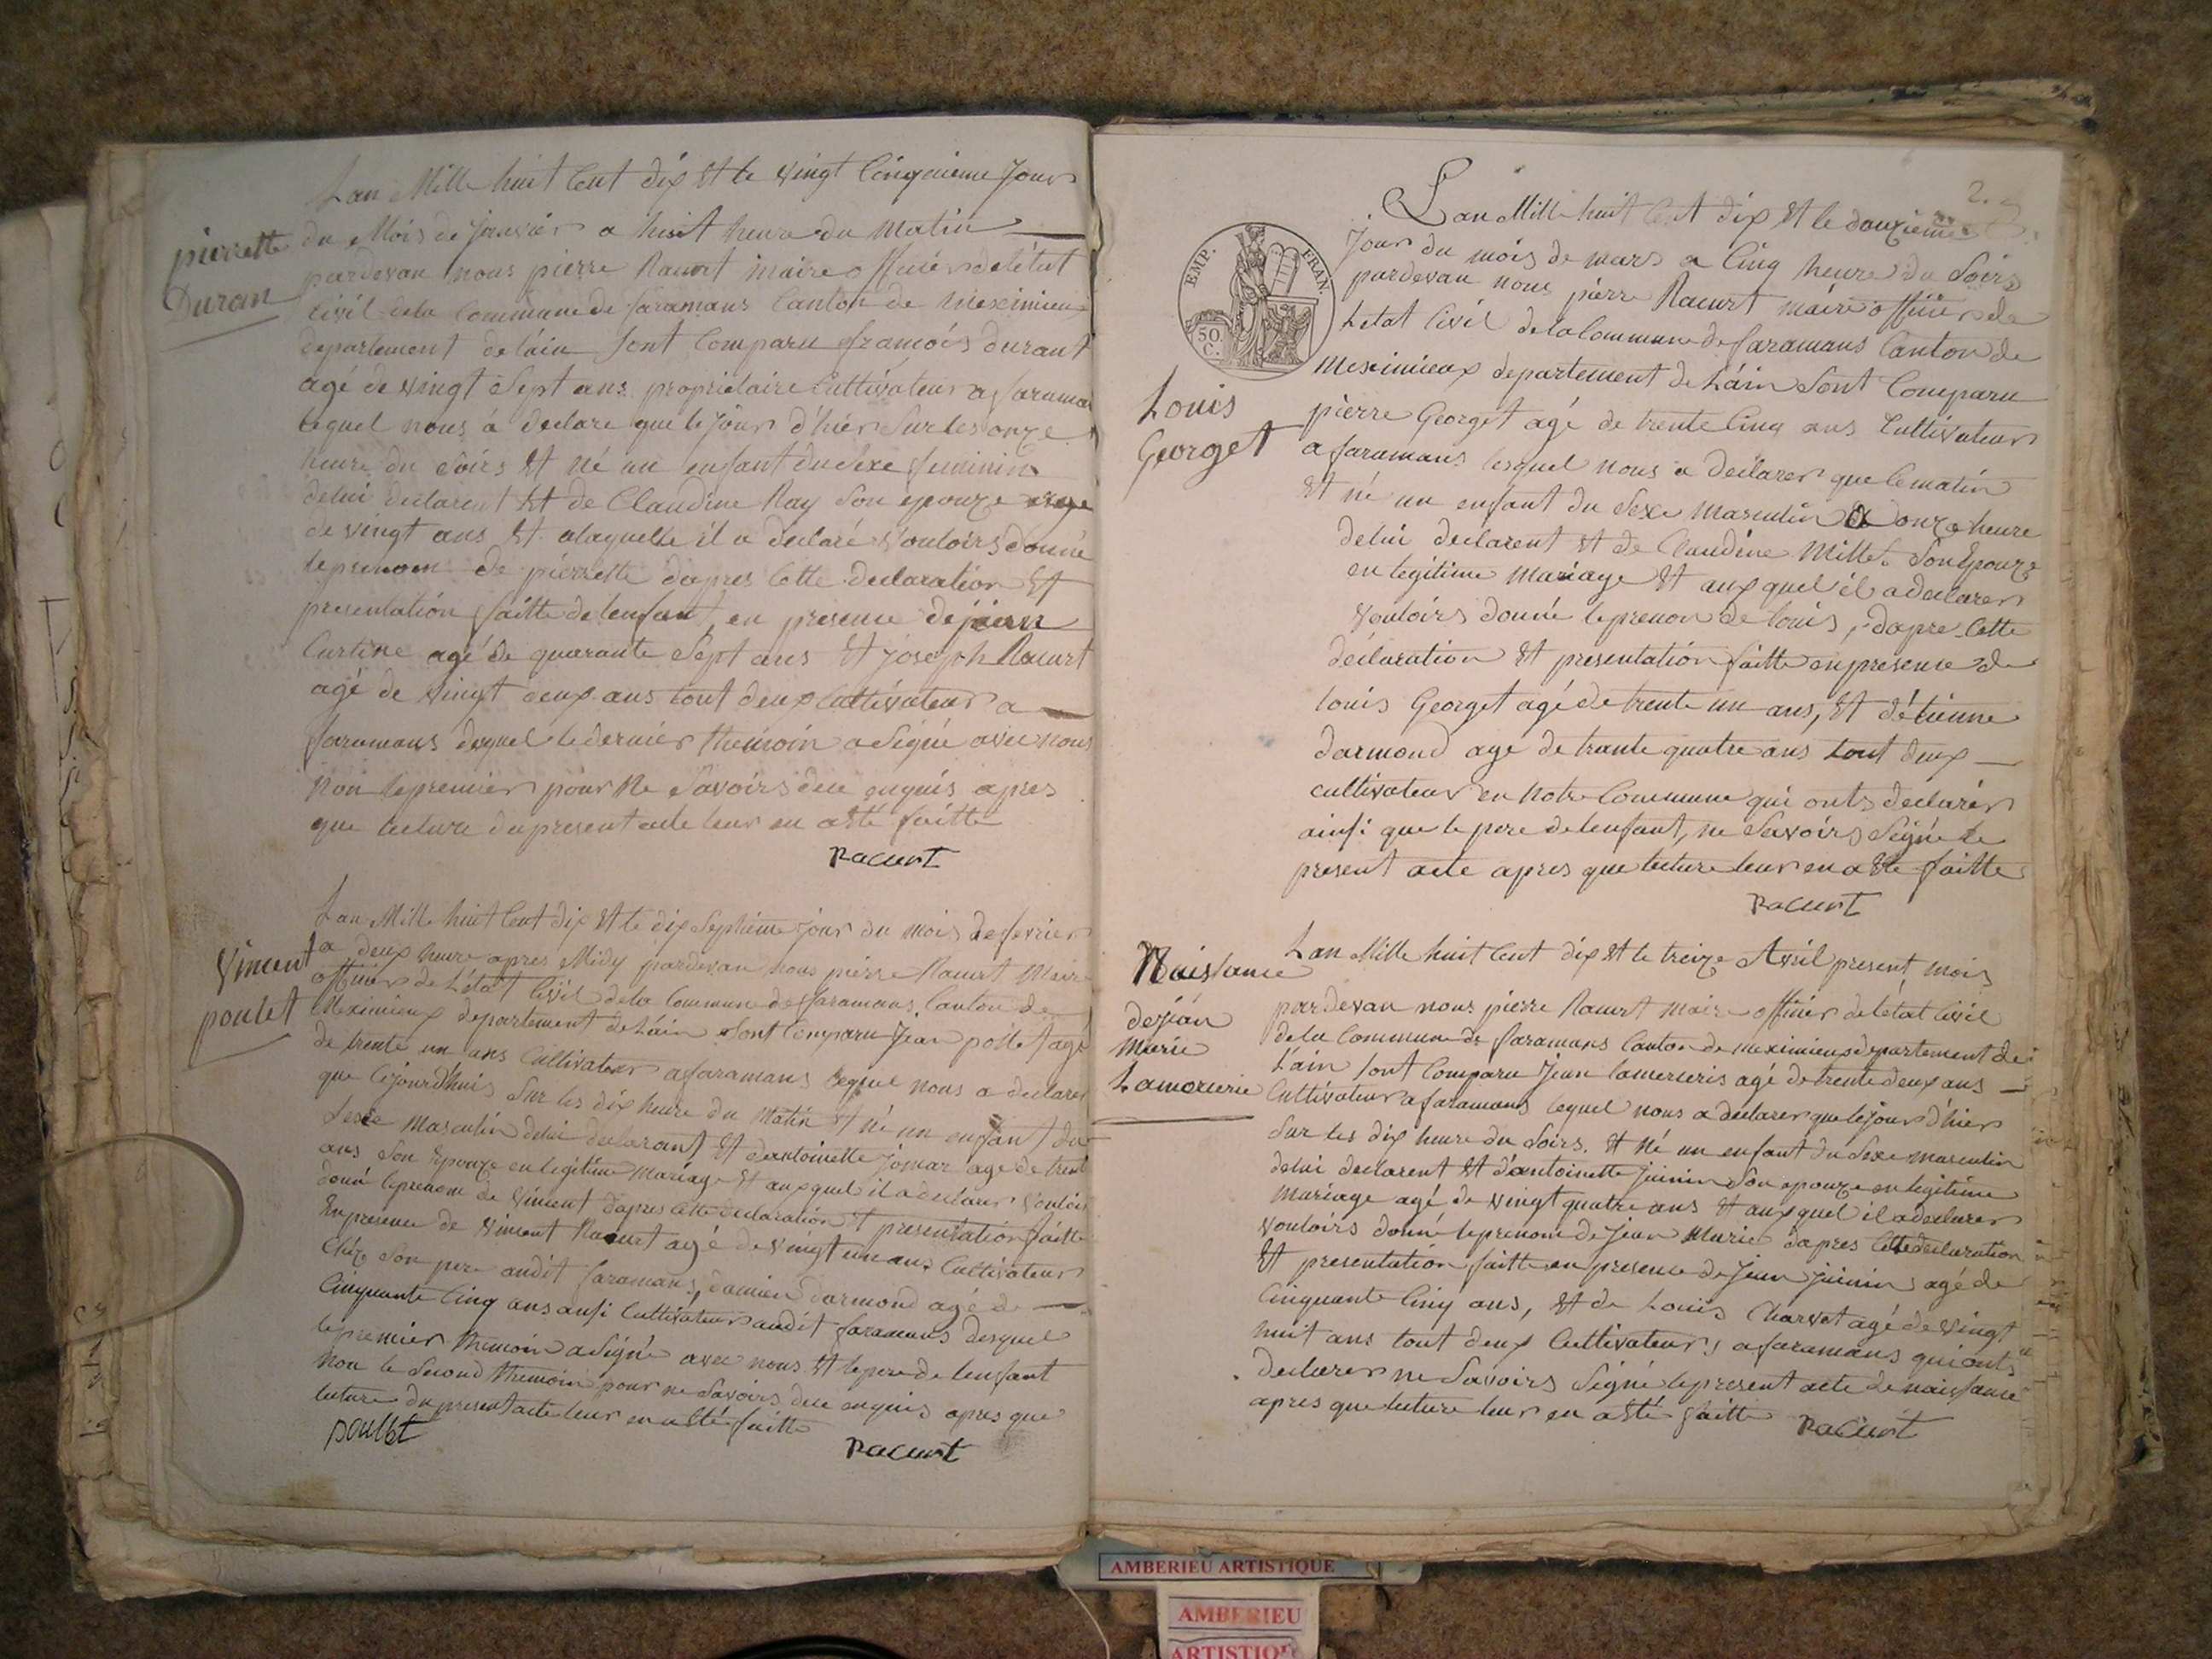 Lan Mille huit Cent dix Et le vingt Cinquieme Jour
pierrette
Duran
du Mois de Janvier a huit heure du Matin
pardevan nous pierre Racurt maire officier de létat
Civil de la Commune de faramans Canton de Meximieux
departement de láin Sont Comparu francóis durant
agé de vingt Sept ans proprietaire Cultivateur a faramans
lequel nous á declare que le Jour d'hiér Sur les onze
heure du Soirs Et né un enfant du Sexe feminin
de lui declarent Et de Claudine Ray Son epouze age
de vingt ans Et a laquelle il a declaré Vouloirs donné
le prenom de pierrette dapres Cette declaration Et
presentation faitte de lenfant, en presence de jean
Curtine agé de quarante Sept ans Et joseph Racurt
agé de vingt deux ans tout deux Cultivateur a
faramans desquel le dernier themoin a Signé avec nous
Non le premier pour Ne Savoirs de ce enquis apres
que lecture du present acte leur en a Eté faitte
Racurt
Lan Mille huit Cent dix Et le dix Septieme jour du mois de fevrier
Vincent
poulet
a deux heure apres Midy pardevan nous pierre Racurt Maire
officier de L'état Civil de la Commune de faramans Canton de
Meximieux departement de Láin Sont Comparu Jean pollet agé
de trente un ans Cultivateur a faramans lequel nous a declarer
que Cejourd'huis Sur les dix heure du Matin Et né un enfant du
Sexe masculin de lui declarant Et de antoinette jomar age de trente
ans Son Epouze en legitime Mariage Et aux quel il a declarer Vouloir
donné le prenom de Vincent dapres cette declaration Et presentation faitte
En presence de Vincent Racurt agé de Vingt un ans Cultivateur
Chéz Son pere audit faramans, damien darmond agé de
Cinquante Cinq ans ausi Cultivateur audit faramans desquel
le premier themoin a Signé avec nous Et le pere de lenfant
Non le Second themoin pour ne Savoirs de ce enquis apres que
lecture du present acte leur en a Eté faitte
poulet
Racurt
2.
Lan Mille huit Cent dix Et le douzieme
EMP. FRAN.
50
C.
Jour du mois de mars a Cinq heure du Soirs
pardevan nous pierre Racurt maire officier de
Létat Civil de la Commune de faramans Canton de
Meximieux departement de Láin Sont Comparu
Louis
Georget
pierre Georget agé de trente Cinq ans Cultivateur
a faramans lesquel nous a declarer que Cematin
Et né un enfant du Sexe masculin a onze heure
de lui declarent Et de Claudine Millet Son Epouze
en legitime Mariage Et aux quel il a declarer
Vouloirs donné le prenon de louis, dapre Cette
declaration Et presentation faitte en presence de
louis Georget agé de trente un ans, Et détienne
darmond age de trante quatre ans tout deux
cultivateur en Notre Commune qui onts declarér
ainsi que le pere de lenfant, ne Savoirs Signé le
present acte apres que lecture leur en a Ete faitte
Racurt
Lan Mille huit Cent dix Et le treize Avril present mois
Naissance
de jéan
Marie
Lamercerie
pardevan nous pierre Racurt Maire officier de létat Civil
de la Commune de faramans Canton de meximieux departement de
Láin Sont Comparu Jean lamerceris agé de trente deux ans
Cultivateur a faramans lequel nous a declarer que le jour d'hier
Sur les dix heure du Soirs. Et né un enfant du Sexe masculin
de lui declarent Et d'antoinette juinin Son epouze en legitime
mariage agé de vingt quatre ans Et aux quel il a declarer
Vouloirs donné le prenom de Jean Marie dapres Cette declaration
Et presentation faitte en presence de Jean juinin agé de
Cinquante Cinq ans, Et de Louis Charvet agé de vingt
huit ans tout deux Cultivateurs a faramans qui onts
declarer ne Savoirs Signé le present acte de naissance
apres que lecture leur en a Eté faitte Racurt
AMBERIEU ARTISTIQUE
AMBERIEU